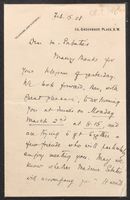 24, GROSVENOR PLACE, S.W.
Feb. 15. 08
Dear Mr. Roberts
Many thanks for
your telegram of yesterday.
We look forward, then, with
great pleasure, to welcoming
you at lunch on Monday
March 2nd at 1.15, and
are trying to get together a
few friends who will particularly
enjoy meeting you. May we
know whether Madame
will accompany you? It would